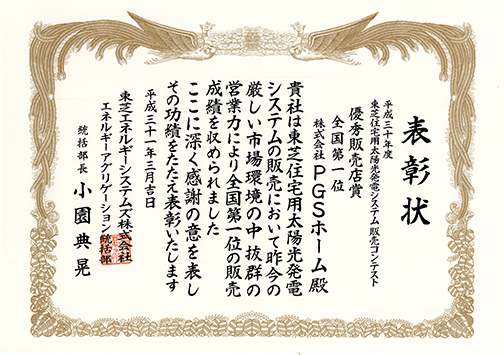 表彰状
平成三十年度
東芝住宅用太陽光発電システム販売コンテスト
優秀販売店賞
全国第一位
株式会社PGSホーム殿
貴社は東芝住宅用太陽光発電
システムの販売において昨今の
厳しい市場環境の中抜群の
営業力により全国第一位の販売
成績を収められました
ここに深く感謝の意を表し
その功績をたたえ表彰いたします
平成三十一年三月吉日
東芝エネルギーシステムズ株式会社
エネルギーアグリゲーション統括部
統括部長 小園典晃